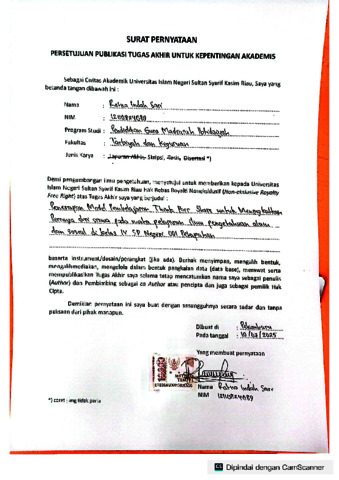 SURAT PERNYATAAN
PERSETUJUAN PUBLIKASI TUGAS AKHIR UNTUK KEPENTINGAN AKADEMIS
Sebagai Civitas Akademik Universitas Islam Negeri Sultan Syarif Kasim Riau, Saya yang
betanda tangan dibawah ini :
Nama : Ratna Indah Sari
NIM :
Program Studi : Pendidikan Guru Madrasah Ibtidaiyah
Fakultas : Tarbiyah dan Keguruan
Jenis Karya : Laporan Akhir, Skripsi, Tesis, Disertasi *)
Demi pengembangan ilmu pengetahuan, menyetujui untuk memberikan kepada Universitas
Islam Negeri Sultan Syarif Kasim Riau Hak Bebas Royalti Noneksklusif (Non-exclusive Royalty
Free Right) atas Tugas Akhir saya yang berjudul :
Penerapan Model Pembelajaran Think Pair Share untuk Meningkatkan
siswa pada mata pelajaran Ilmu pengetahuan alam
dan sosial di kelas IV SD Negeri 001
beserta instrument/desain/perangkat (jika ada). Berhak menyimpan, mengalih bentuk,
mengalihmediakan, mengelola dalam bentuk pangkalan data (data base), merawat serta
mempublikasikan Tugas Akhir saya selama tetap mencatumkan nama saya sebagai penulis
(Author) dan Pembimbing sebagai co Author atau pencipta dan juga sebagai pemilik Hak
Cipta.
Demikian pernyataan ini saya buat dengan sesungguhnya secara sadar dan tanpa
paksaan dari pihak manapun.
Dibuat di : Pekanbaru
Pada tanggal :
Yang membuat pernyataan
Nama : Ratna Indah Sari
NIM :
*) coret yang tidak perlu
CS Dipindai dengan CamScanner